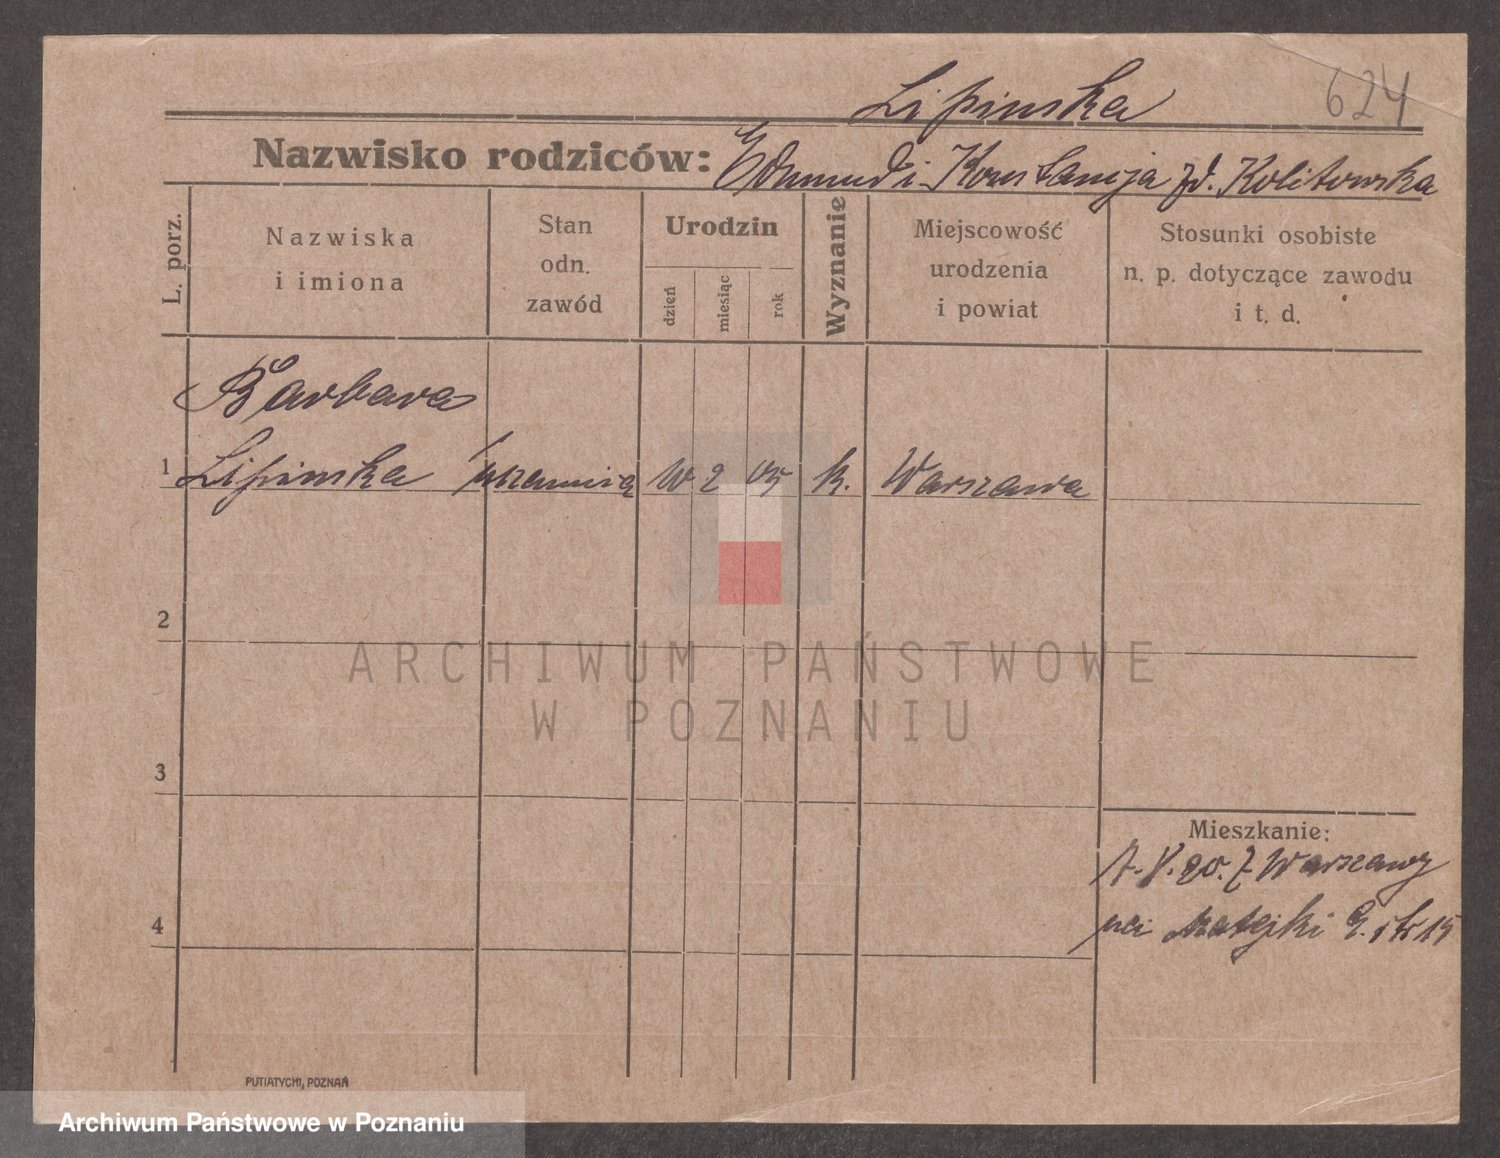 Lipinska 624
Nazwisko rodziców: Edmund i Konstancja zd. Kolitowska
L. porz.
Nazwiska
i imiona
Stan
odn.
zawód
Urodzin
dzień
miesiąc
rok
Wyznanie
Miejscowość
urodzenia
i powiat
Stosunki osobiste
n. p. dotyczące zawodu
i t. d.
Barbara
1 Lipinska 2 05 k. Warszawa
2
3
4
ARCHIWUM PAŃSTWOWE
W POZNANIU
Mieszkanie:
20. z Warszawy
Matejki
PUTIATYCKI, POZNAŃ
Archiwum Państwowe w Poznaniu